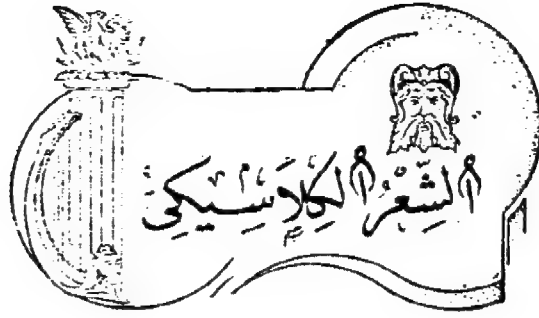 الشِّعْرُ الكِلاَسِيكِيّ